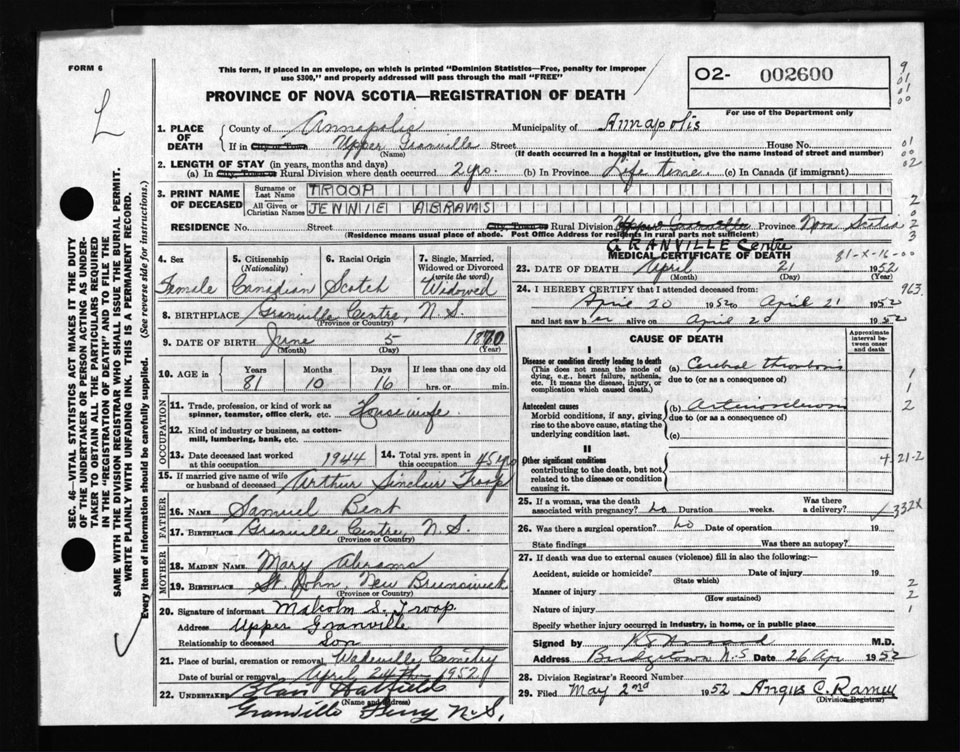 FORM 6
This form, if placed in an envelope, on which is printed "Dominion Statistics—Free, penalty for improper
use $300," and properly addressed will pass through the mail "FREE"
O2- 002600
For use of the Department only
PROVINCE OF NOVA SCOTIA—REGISTRATION OF DEATH
L
9
01
01
00
01
00
02
2
0
2
3
1. PLACE OF DEATH
County of Annapolis Municipality of Annapolis
If in City or Town Upper Granville Street House No.
(Name) (If death occurred in a hospital or institution, give the name instead of street and number)
2. LENGTH OF STAY (in years, months and days)
(a) In City, Town or Rural Division where death occurred 2 yrs. (b) In Province Life time (c) In Canada (if immigrant)
3. PRINT NAME OF DECEASED
Surname or Last Name TROOP
All Given or Christian Names JENNIE ABRAMS
RESIDENCE No. Street City, Town or Rural Division Upper Granville Province Nova Scotia
(Residence means usual place of abode. Post Office Address for residents in rural parts not sufficient)
GRANVILLE Centre
4. Sex
Female
5. Citizenship (Nationality)
Canadian
6. Racial Origin
Scotch
7. Single, Married, Widowed or Divorced (write the word)
Widowed
8. BIRTHPLACE Granville Centre, N.S.
(Province or Country)
9. DATE OF BIRTH June 5 1870
(Month) (Day) (Year)
10. AGE in Years 81 Months 10 Days 16 If less than one day old
hrs. or min.
OCCUPATION
11. Trade, profession, or kind of work as spinner, teamster, office clerk, etc. Housewife
12. Kind of industry or business, as cotton-mill, lumbering, bank, etc.
13. Date deceased last worked at this occupation 1944 14. Total yrs. spent in this occupation 45 yrs
15. If married give name of wife or husband of deceased Arthur Sinclair Troop
FATHER
16. NAME Samuel Bent
17. BIRTHPLACE Granville Centre, N.S.
(Province or Country)
MOTHER
18. MAIDEN NAME Mary Abrams
19. BIRTHPLACE St. John, New Brunswick
(Province or Country)
20. Signature of informant Malcolm S. Troop.
Address Upper Granville
Relationship to deceased Son
21. Place of burial, cremation or removal Cemetery
Date of burial or removal April 24 1952
22. UNDERTAKER Blair Hatfield
(Name and Address)
Granville Ferry N.S.
MEDICAL CERTIFICATE OF DEATH
81-X-16-00
23. DATE OF DEATH April 21 1952
(Month) (Day) (Year)
24. I HEREBY CERTIFY that I attended deceased from:
963
April 20 1952 to April 21 1952
and last saw her alive on April 20 1952
CAUSE OF DEATH
Approximate interval between onset and death
I
Disease or condition directly leading to death
(This does not mean the mode of dying, e.g., heart failure, asthenia, etc. It means the disease, injury, or complication which caused death.)
(a) Cerebral thrombosis
due to (or as a consequence of)
1
Antecedent causes
Morbid conditions, if any, giving rise to the above cause, stating the underlying condition last.
(b)
due to (or as a consequence of)
2
(c)
II
Other significant conditions
contributing to the death, but not related to the disease or condition causing it.
4-21-2
25. If a woman, was the death associated with pregnancy? no Duration weeks. Was there a delivery?
332X
26. Was there a surgical operation? no Date of operation 19
State findings Was there an autopsy?
27. If death was due to external causes (violence) fill in also the following:—
Accident, suicide or homicide? Date of injury 19
(State which)
Manner of injury
(How sustained)
2
Nature of injury
2
1
Specify whether injury occurred in industry, in home, or in public place
Signed by M.D.
Address Bridgetown N.S Date 26 Apr 1952
28. Division Registrar's Record Number
29. Filed May 2nd 1952 Angus C. Ramey
(Division Registrar)
SEC. 46—VITAL STATISTICS ACT MAKES IT THE DUTY
OF THE UNDERTAKER OR PERSON ACTING AS UNDER-
TAKER TO OBTAIN ALL THE PARTICULARS REQUIRED
IN THE "REGISTRATION OF DEATH" AND TO FILE THE
SAME WITH THE DIVISION REGISTRAR WHO SHALL ISSUE THE BURIAL PERMIT.
WRITE PLAINLY WITH UNFADING INK. THIS IS A PERMANENT RECORD.
Every item of information should be carefully supplied. (See reverse side for instructions.)